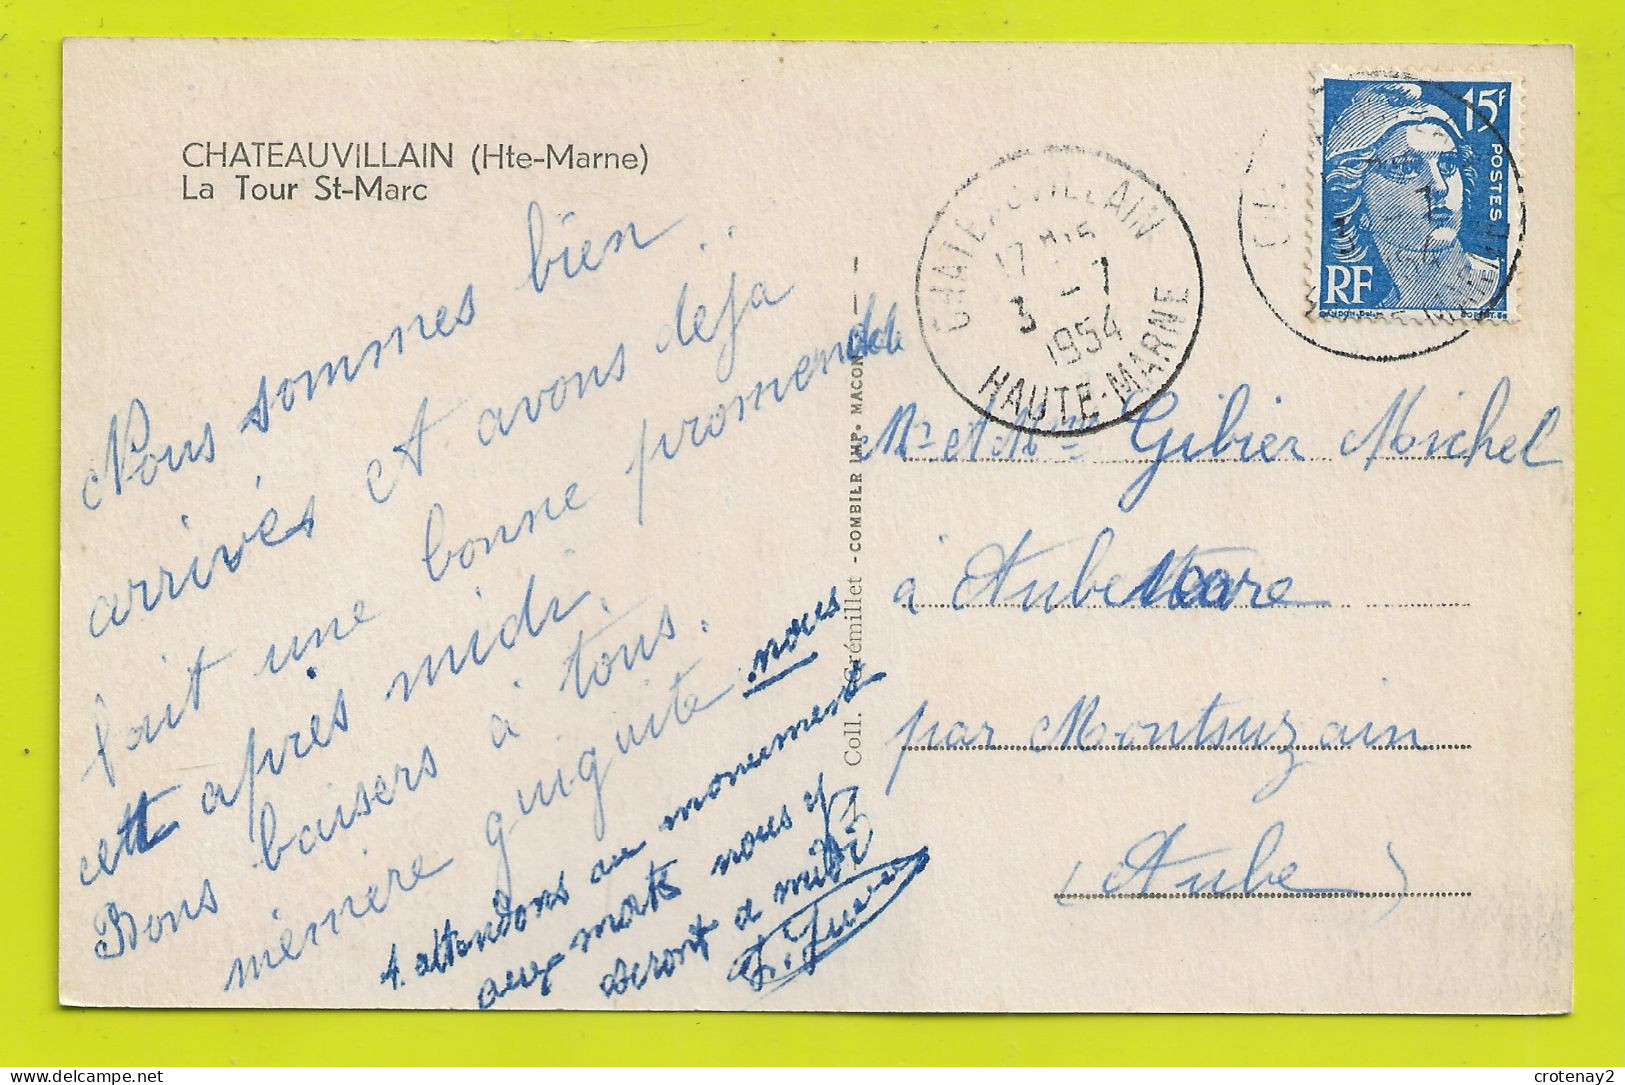 CHATEAUVILLAIN (Hte-Marne)
La Tour St-Marc
Nous sommes bien
arrivés et avons deja
fait une bonne promenade
cett après midi.
Bons baisers à tous.
mémère guiguite nous
t. attendons au monument
aux morts nous y
seront a midi
Coll. Grémillet - COMBIER IMP. MACON
CHATEAUVILLAIN
17 H 15
3 - 7
1954
HAUTE-MARNE
15F
POSTES
RF
Mr et Mme Gibier Michel
à Aubeterre
par Montsuzain
(Aube)
crotenay2